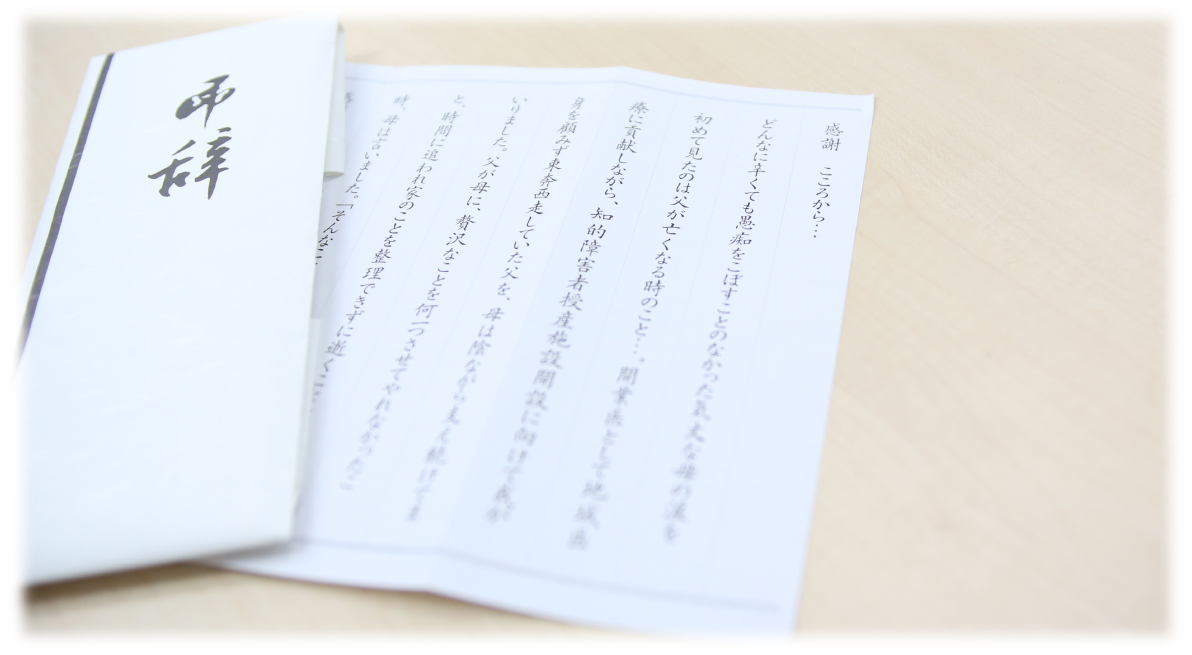 弔辞
感謝　こころから…
どんなに辛くても愚痴をこぼすことのなかった気丈な母の涙を
初めて見たのは父が亡くなる時のこと…。開業医として地域医
療に貢献しながら、知的障害者授産施設開設に向けて我が
身を顧みず東奔西走していた父を、母は陰ながら支え続けてま
いりました。父が母に、贅沢なことを何一つさせてやれなかったこ
と、時間に追われ家のことを整理できずに逝くこ
時、母は言いました。「そんなこ